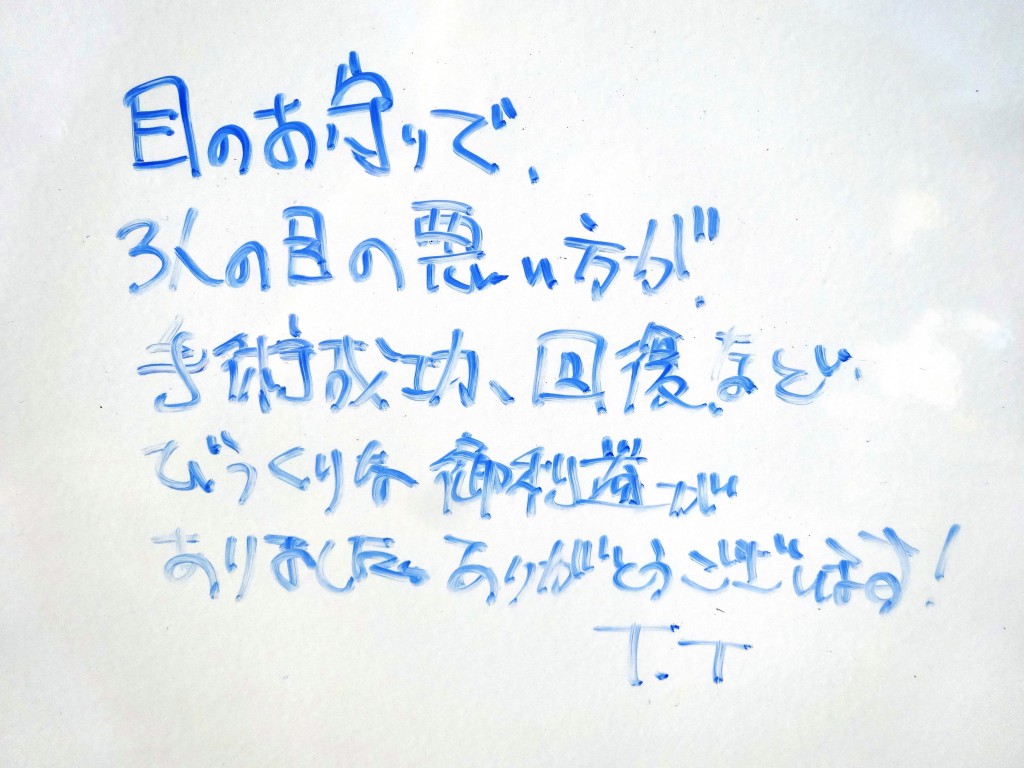 目のお守りで、
3人の目の悪い方が、
手術成功、回復など、
びっくりな御利益が
ありました。ありがとうございます!
T.T